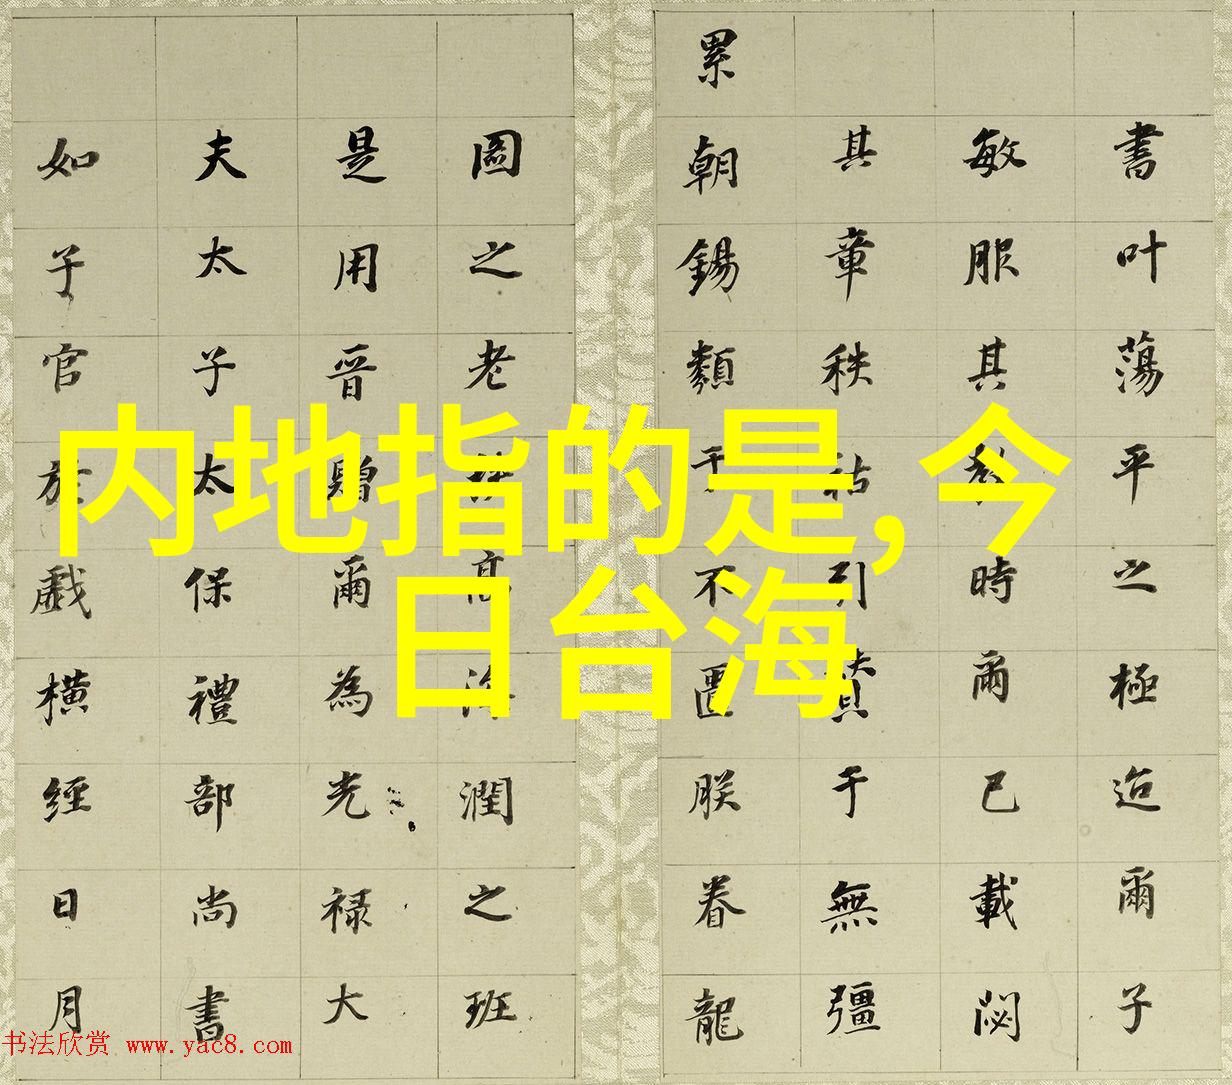 書叶蕩平之極迨爾子
敏服其教時爾已載閟
其章秩祜引贊于無彊
累朝錫類于不匱朕眷龍
圖之老扶高海潤之班
是用晉鷄爾為光禄大
夫太子太保禮部尚書
如子官於戲横經日月
内地指的是,今
日台海
书法欣赏 www.yac8.com